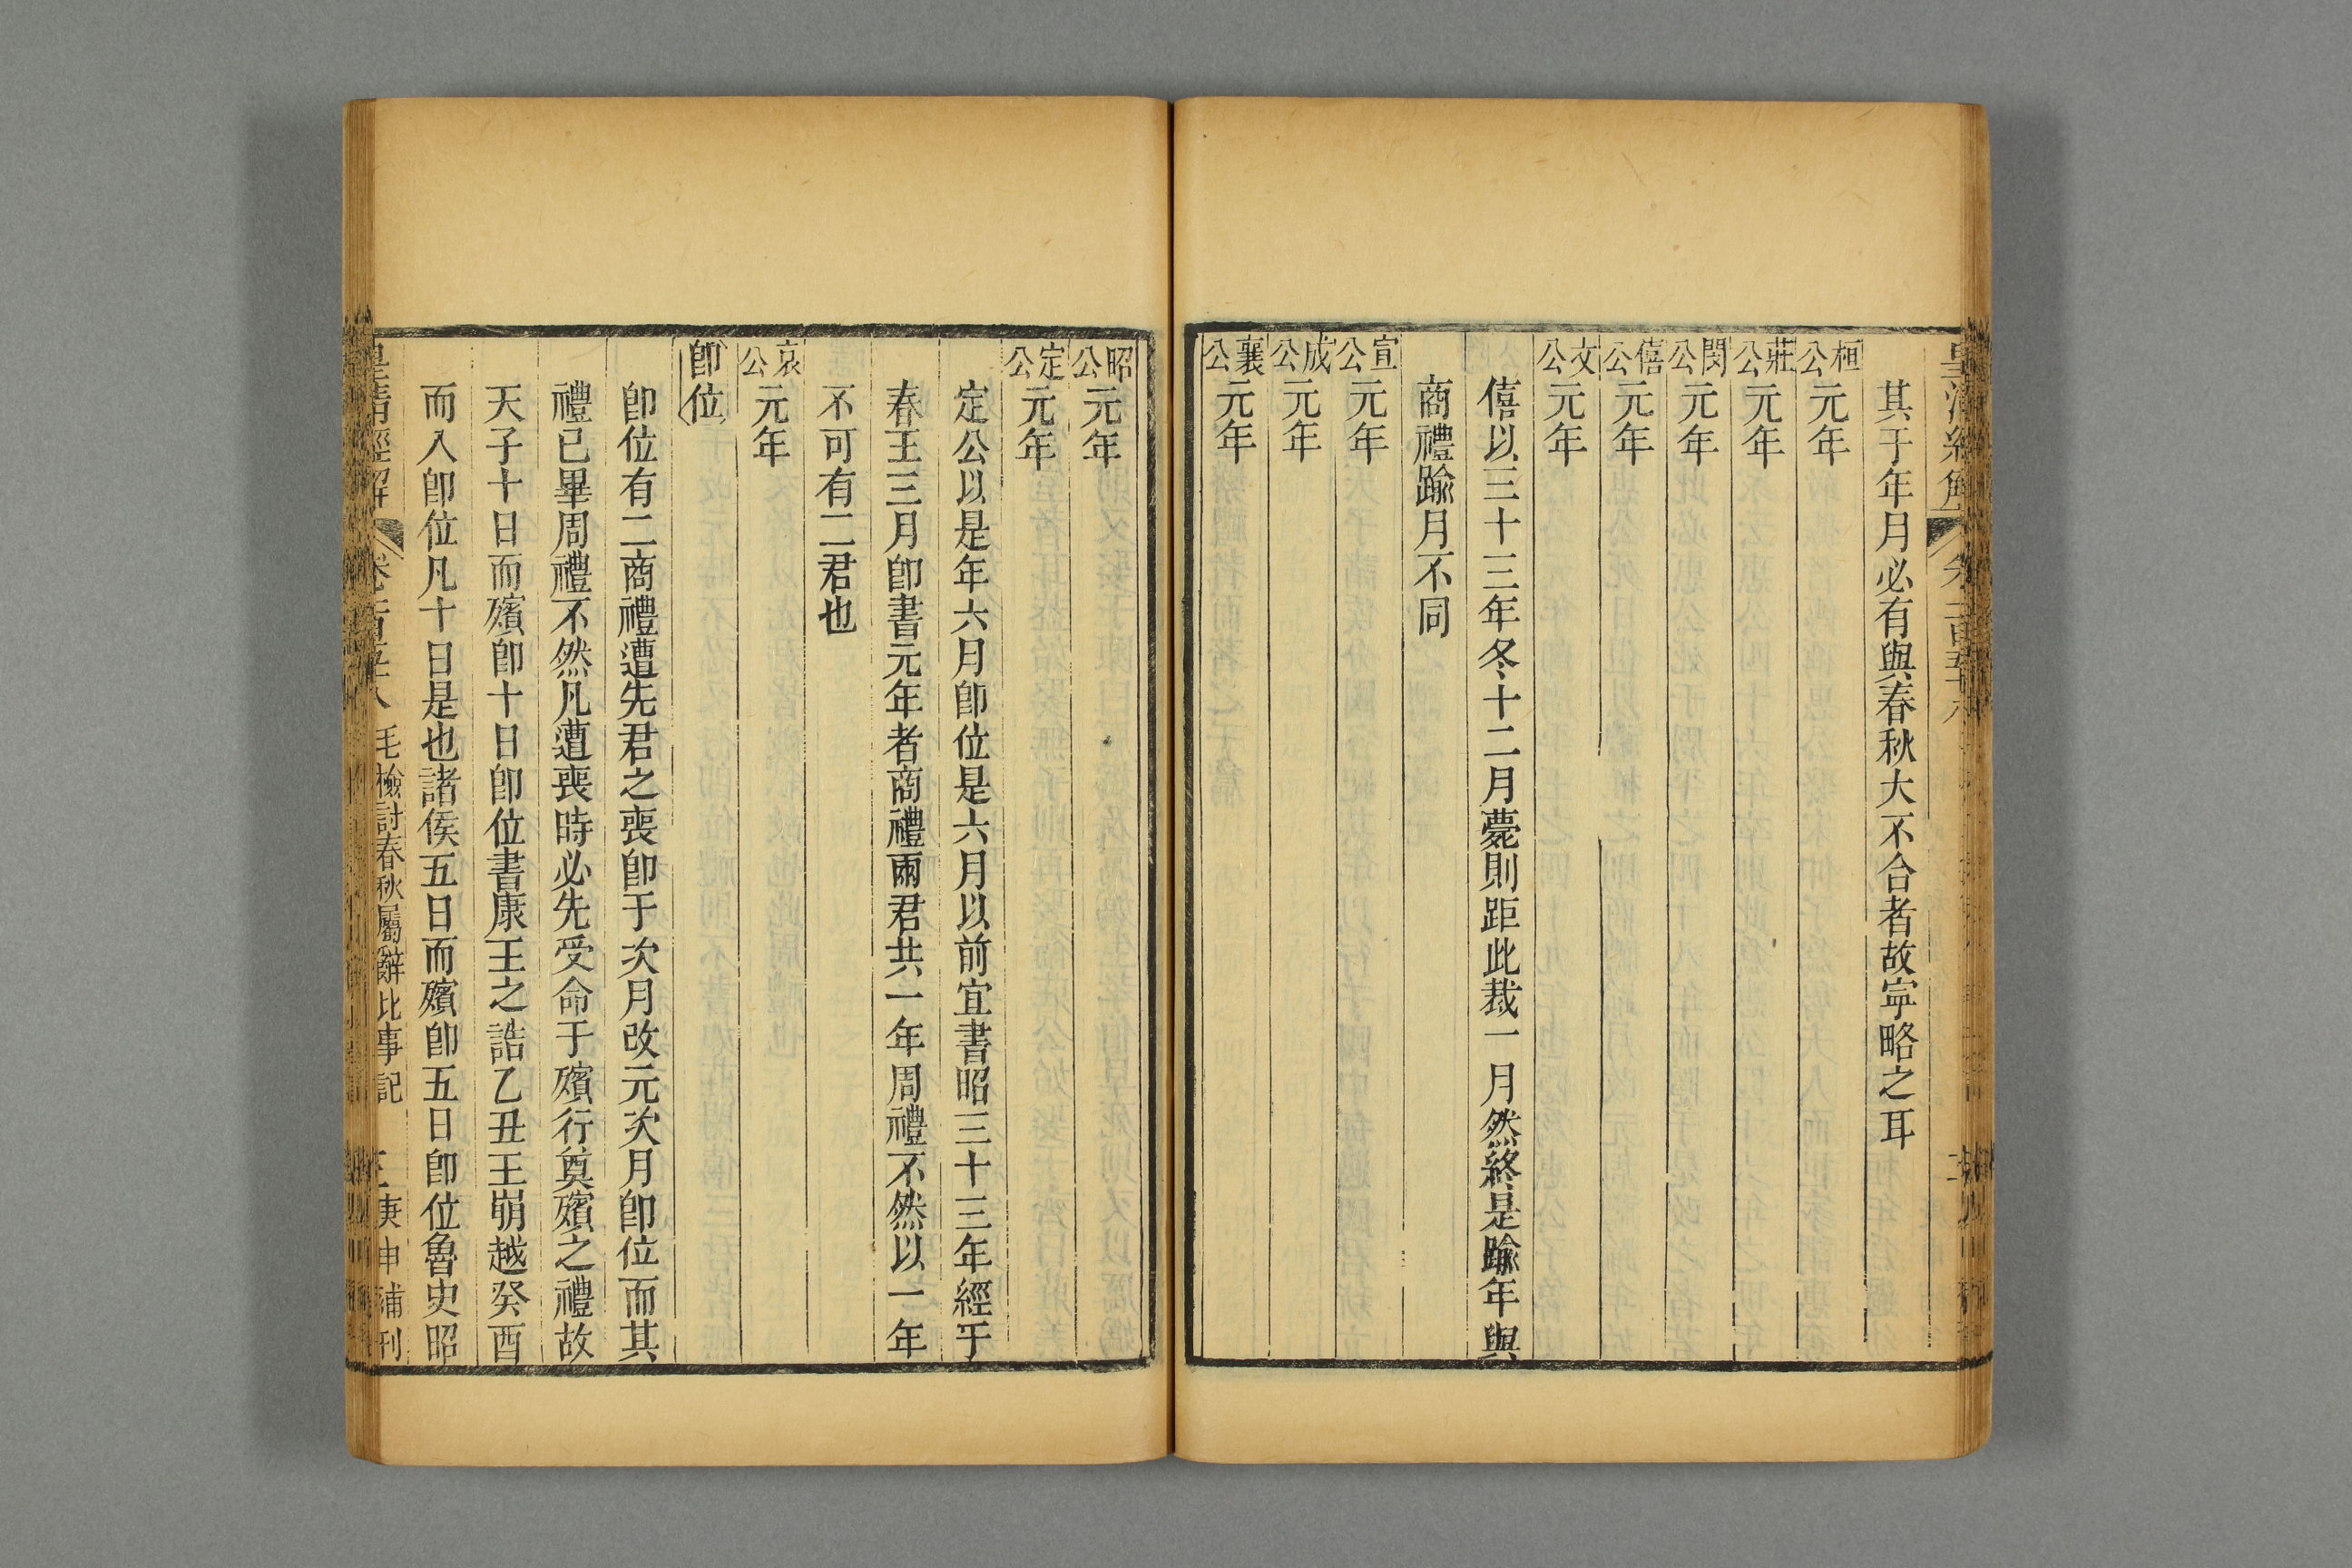 皇清經解
其于年月必有與春秋大不合者故寧略之耳
桓公元年
莊公元年
閔公元年
僖公元年
文公元年
僖以三十三年冬十二月薨則距此裁一月然終是踰年與
商禮踰月不同
宣公元年
成公元年
襄公元年
昭公元年
定公元年
定公以是年六月卽位是六月以前宜書昭三十三年經于
春王三月卽書元年者商禮兩君共一年周禮不然以一年
不可有二君也
哀公元年
卽位
卽位有二商禮遭先君之喪卽于次月改元次月卽位而其
禮已畢周禮不然凡遭喪時必先受命于殯行奠殯之禮故
天子十日而殯卽十日卽位書康王之誥乙丑王崩越癸酉
而入卽位凡十日是也諸侯五日而殯卽五日卽位魯史昭
皇清經解 卷一百五十八 毛檢討春秋屬辭比事記 三 庚申補刊